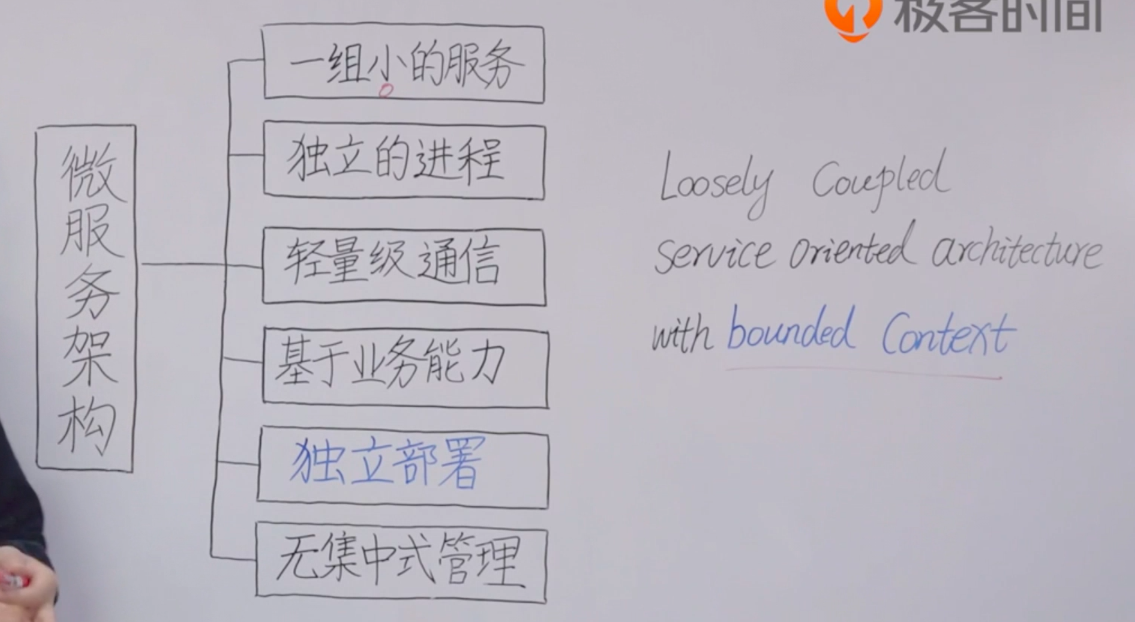 极客时间
微服务架构
一组小的服务
独立的进程
轻量级通信
基于业务能力
独立部署
无集中式管理
Loosely Coupled
service oriented architecture
with bounded Context